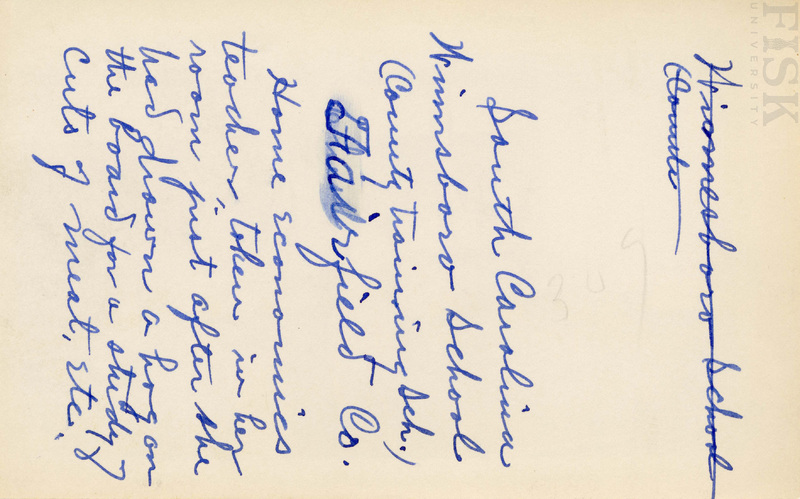 FISK
UNIVERSITY
Winnesboro School
(County
South Carolina
Winnsboro School
(County Training Sch.)
Fairfield Co.
Home economics
teacher taken in her
room just after she
had drawn a hog on
the board for a study of
cuts of meat, etc.
309